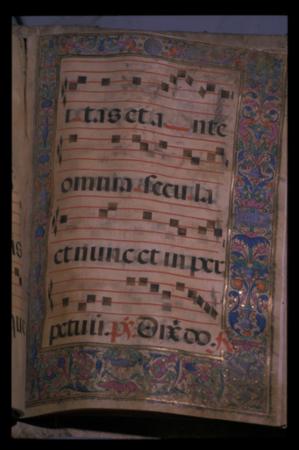 i tas et a nte
omnia secula
et nunc et in per
petuu. ps. Dixi do